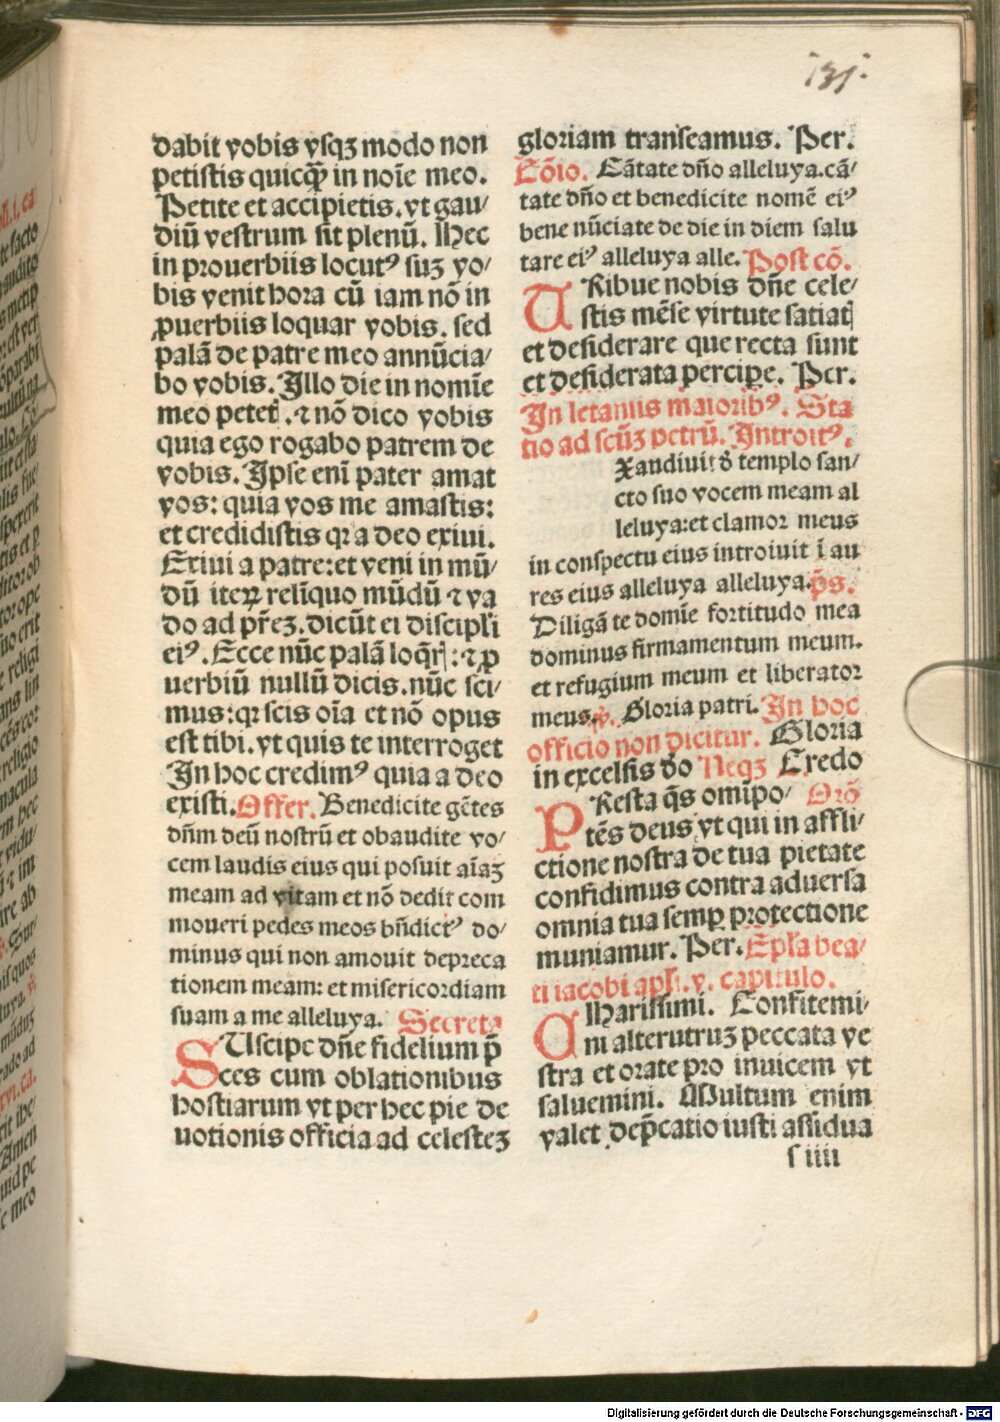 131.
dabit vobis vsqꝫ modo non
petistis quicqꝫ in noīe meo.
Petite et accipietis.vt gau/
diū vestrum sit plenū. Hec
in prouerbiis locutꝰ suꝫ vo/
bis venit hora cū iam nō in
ꝓuerbiis loquar vobis. sed
palā de patre meo annūcia/
bo vobis. Illo die in nomīe
meo petet̄ .⁊ nō dico vobis
quia ego rogabo patrem de
vobis. Ipse enī pater amat
vos: quia vos me amastis:
et credidistis qr a deo exiui.
Exiui a patre:et veni in mū/
dū iterꝝ relīquo mūdū ⁊ va
do ad pr̄eꝫ.dicūt ei discipl̄i
eiꝰ. Ecce nūc palā loq̄rꝭ:⁊ ꝓ
uerbiū nullū dicis.nūc sci/
mus:qr scis oīa et nō opus
est tibi.vt quis te interroget
In hoc credimꝰ quia a deo
existi. Offer. Benedicite gētes
dn̄m deū nostrū et obaudite vo/
cem laudis eius qui posuit aīaꝫ
meam ad vitam et nō dedit com
moueri pedes meos bn̄dictꝰ do/
minus qui non amouit depreca
tionem meam: et misericordiam
suam a me alleluya. Secreta
SUscipe dn̄e fidelium p̄
ces cum oblationibus
hostiarum vt per hec pie de
uotionis officia ad celesteꝫ
gloriam transeamus. Per.
Cōio. Cātate dn̄o alleluya.cā/
tate dn̄o et benedicite nomē eiꝰ
bene nūciate de die in diem salu
tare eiꝰ alleluya alle. Post cō.
TRibue nobis dn̄e cele/
stis mēse virtute satiatꝭ
et desiderare que recta sunt
et desiderata percipe. Per.
In letaniis maioribꝰ. Sta
tio ad scūꝫ petrū. Introitꝰ.
Xaudiuit d̄ templo san/
cto suo vocem meam al
leluya:et clamor meus
in conspectu eius introiuit ī au
res eius alleluya alleluya. p̄s.
Diligā te domīe fortitudo mea
dominus firmamentum meum.
et refugium meum et liberator
meus. v̄. Gloria patri. In hoc
officio non dicitur. Gloria
in excelsis d̄o Neqꝫ Credo
PResta q̄s omīpo/ Orō
tēs deus vt qui in affli/
ctione nostra de tua pietate
confidimus contra aduersa
omnia tua semꝑ protectione
muniamur. Per. Ep̄la bea/
ti iacobi apl̄i.v. capitulo.
CHarissimi. Confitemi/
ni alterutruꝫ peccata ve
stra et orate pro inuicem vt
saluemini. Multum enim
valet dep̄catio iusti assidua
s iiii
Digitalisierung gefördert durch die Deutsche Forschungsgemeinschaft - DFG